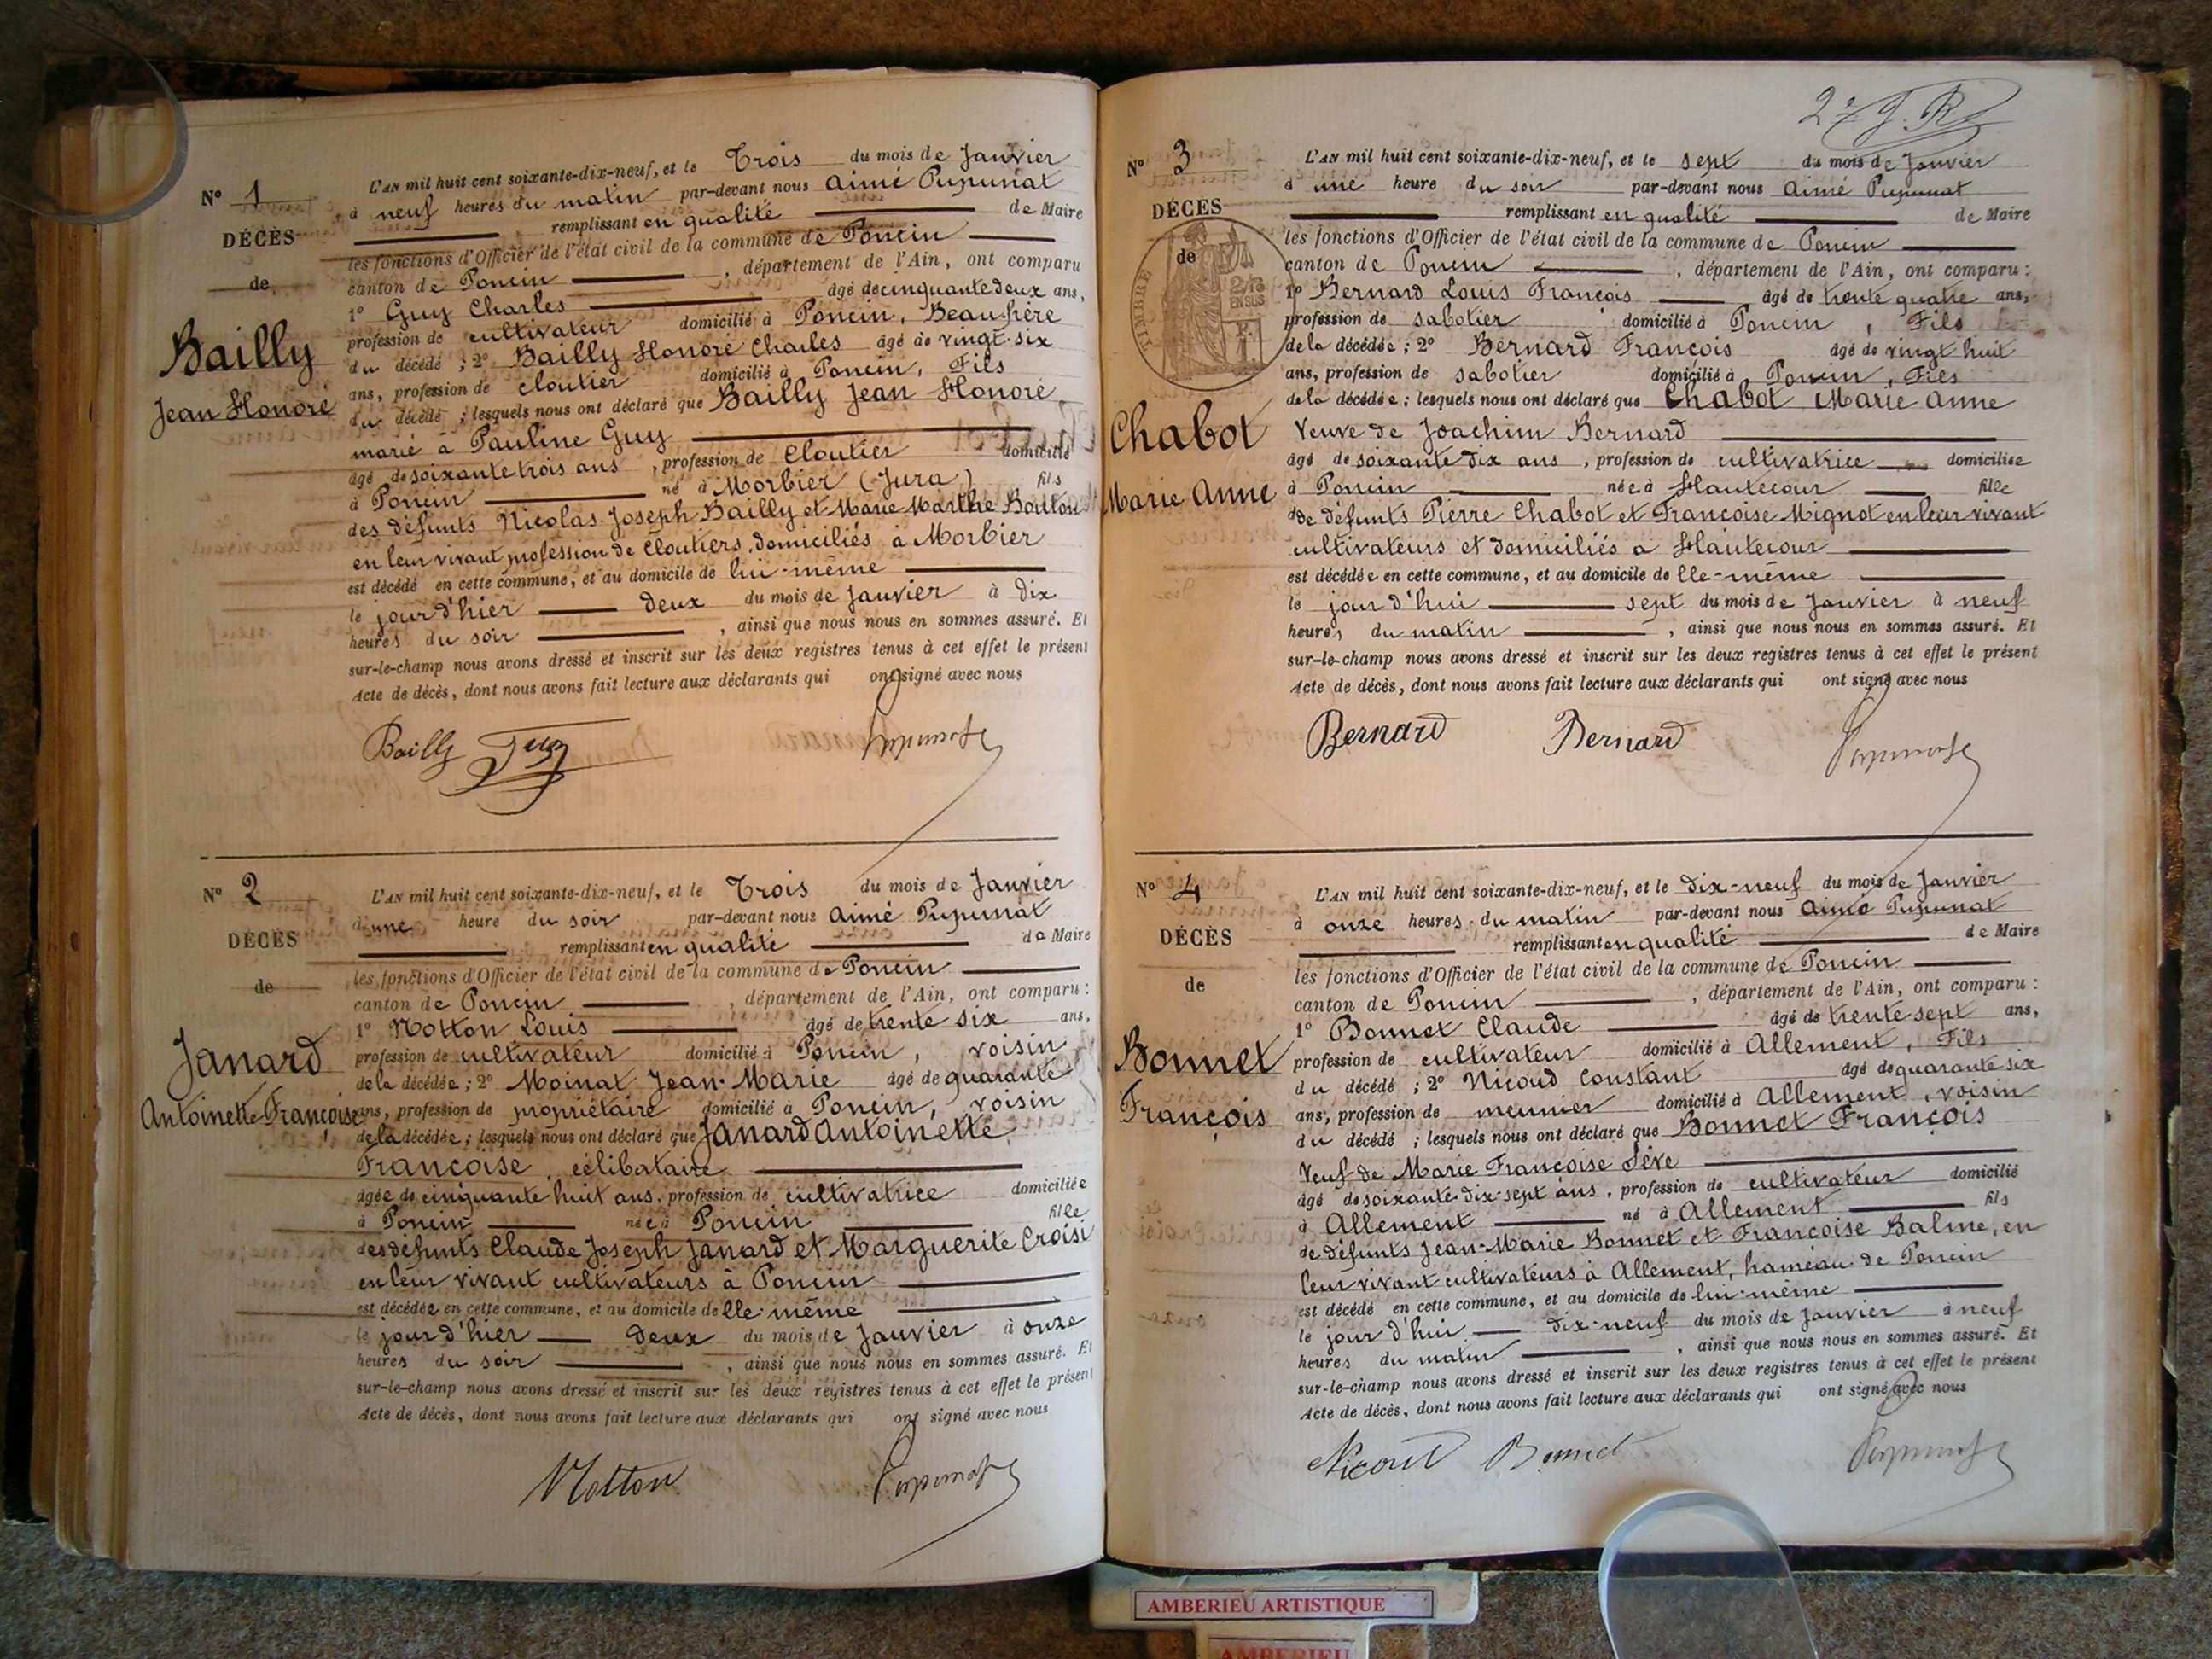 N° 1
DÉCÈS
de
Bailly
Jean Honoré
L'AN mil huit cent soixante-dix-neuf, et le Trois du mois de Janvier
à neuf heures du matin par-devant nous Aimé Pupunat
remplissant en qualité de Maire
les fonctions d'Officier de l'état civil de la commune de Poncin
canton de Poncin , département de l'Ain, ont comparu
1° Guy Charles âgé de cinquante deux ans,
profession de cultivateur domicilié à Poncin, Beaufrère
du décédé ; 2° Bailly Honoré Charles âgé de vingt-six
ans, profession de cloutier domicilié à Poncin, Fils
du décédé ; lesquels nous ont déclaré que Bailly Jean Honoré,
marié à Pauline Guy
âgé de soixante trois ans , profession de Cloutier domicilié
à Poncin né à Morbier (Jura) fils
des défunts Nicolas Joseph Bailly et Marie Marthe Bouton
en leur vivant profession de Cloutiers, domiciliés à Morbier
est décédé en cette commune, et au domicile de lui-même
le jour d'hier deux du mois de Janvier à dix
heures du soir , ainsi que nous nous en sommes assuré. Et
sur-le-champ nous avons dressé et inscrit sur les deux registres tenus à cet effet le présent
Acte de décès, dont nous avons fait lecture aux déclarants qui ont signé avec nous
Bailly Guy Pupunat
N° 2
DÉCÈS
de
Janard
Antoinette Françoise
L'AN mil huit cent soixante-dix-neuf, et le Trois du mois de Janvier
d'une heure du soir par-devant nous Aimé Pupunat
remplissant en qualité de Maire
les fonctions d'Officier de l'état civil de la commune de Poncin
canton de Poncin , département de l'Ain, ont comparu :
1° Notton Louis âgé de trente six ans,
profession de cultivateur domicilié à Poncin, voisin
de la décédée ; 2° Moinat Jean-Marie âgé de quarante
ans, profession de propriétaire domicilié à Poncin, voisin
de la décédée ; lesquels nous ont déclaré que Janard Antoinette
Françoise, célibataire
âgée de cinquante huit ans, profession de cultivatrice domiciliée
à Poncin née à Poncin fille
des défunts Claude Joseph Janard et Marguerite Croisi
en leur vivant cultivateurs à Poncin
est décédée en cette commune, et au domicile de lle-même
le jour d'hier deux du mois de Janvier à onze
heures du soir , ainsi que nous nous en sommes assuré. Et
sur-le-champ nous avons dressé et inscrit sur les deux registres tenus à cet effet le présent
Acte de décès, dont nous avons fait lecture aux déclarants qui ont signé avec nous
Notton Pupunat
N° 3
DÉCÈS
de
TIMBRE
2/10
EN SUS
Chabot
Marie Anne
L'AN mil huit cent soixante-dix-neuf, et le sept du mois de Janvier
à une heure du soir par-devant nous Aimé Pupunat
remplissant en qualité de Maire
les fonctions d'Officier de l'état civil de la commune de Poncin
canton de Poncin , département de l'Ain, ont comparu :
1° Bernard Louis François âgé de trente quatre ans,
profession de sabotier domicilié à Poncin , Fils
de la décédée ; 2° Bernard François âgé de vingt huit
ans, profession de sabotier domicilié à Poncin, Fils
de la décédée ; lesquels nous ont déclaré que Chabot Marie Anne
Veuve de Joachim Bernard
âgé de soixante dix ans , profession de cultivatrice domiciliée
à Poncin née à Hautecour fille
de défunts Pierre Chabot et Françoise Mignot en leur vivant
cultivateurs et domiciliés à Hautecour
est décédée en cette commune, et au domicile de lle-même
le jour d'hui sept du mois de Janvier à neuf
heures du matin , ainsi que nous nous en sommes assuré. Et
sur-le-champ nous avons dressé et inscrit sur les deux registres tenus à cet effet le présent
Acte de décès, dont nous avons fait lecture aux déclarants qui ont signé avec nous
Bernard Bernard Pupunat
N° 4
DÉCÈS
de
Bonnet
François
L'AN mil huit cent soixante-dix-neuf, et le dix-neuf du mois de Janvier
à onze heures du matin par-devant nous Aimé Pupunat
remplissant en qualité de Maire
les fonctions d'Officier de l'état civil de la commune de Poncin
canton de Poncin , département de l'Ain, ont comparu :
1° Bonnet Claude âgé de trente sept ans,
profession de cultivateur domicilié à Allement, Fils
du décédé ; 2° Nicoud Constant âgé de quarante six
ans, profession de meunier domicilié à Allement, voisin
du décédé ; lesquels nous ont déclaré que Bonnet François
Veuf de Marie Françoise Sève
âgé de soixante dix sept ans, profession de cultivateur domicilié
à Allement né à Allement fils
de défunts Jean-Marie Bonnet et Françoise Balme, en
leur vivant cultivateurs à Allement, hameau de Poncin
est décédé en cette commune, et au domicile de lui-même
le jour d'hui dix-neuf du mois de Janvier à neuf
heures du matin , ainsi que nous nous en sommes assuré. Et
sur-le-champ nous avons dressé et inscrit sur les deux registres tenus à cet effet le présent
Acte de décès, dont nous avons fait lecture aux déclarants qui ont signé avec nous
Nicoud Bonnet Pupunat
AMBERIEU ARTISTIQUE
AMBERIEU